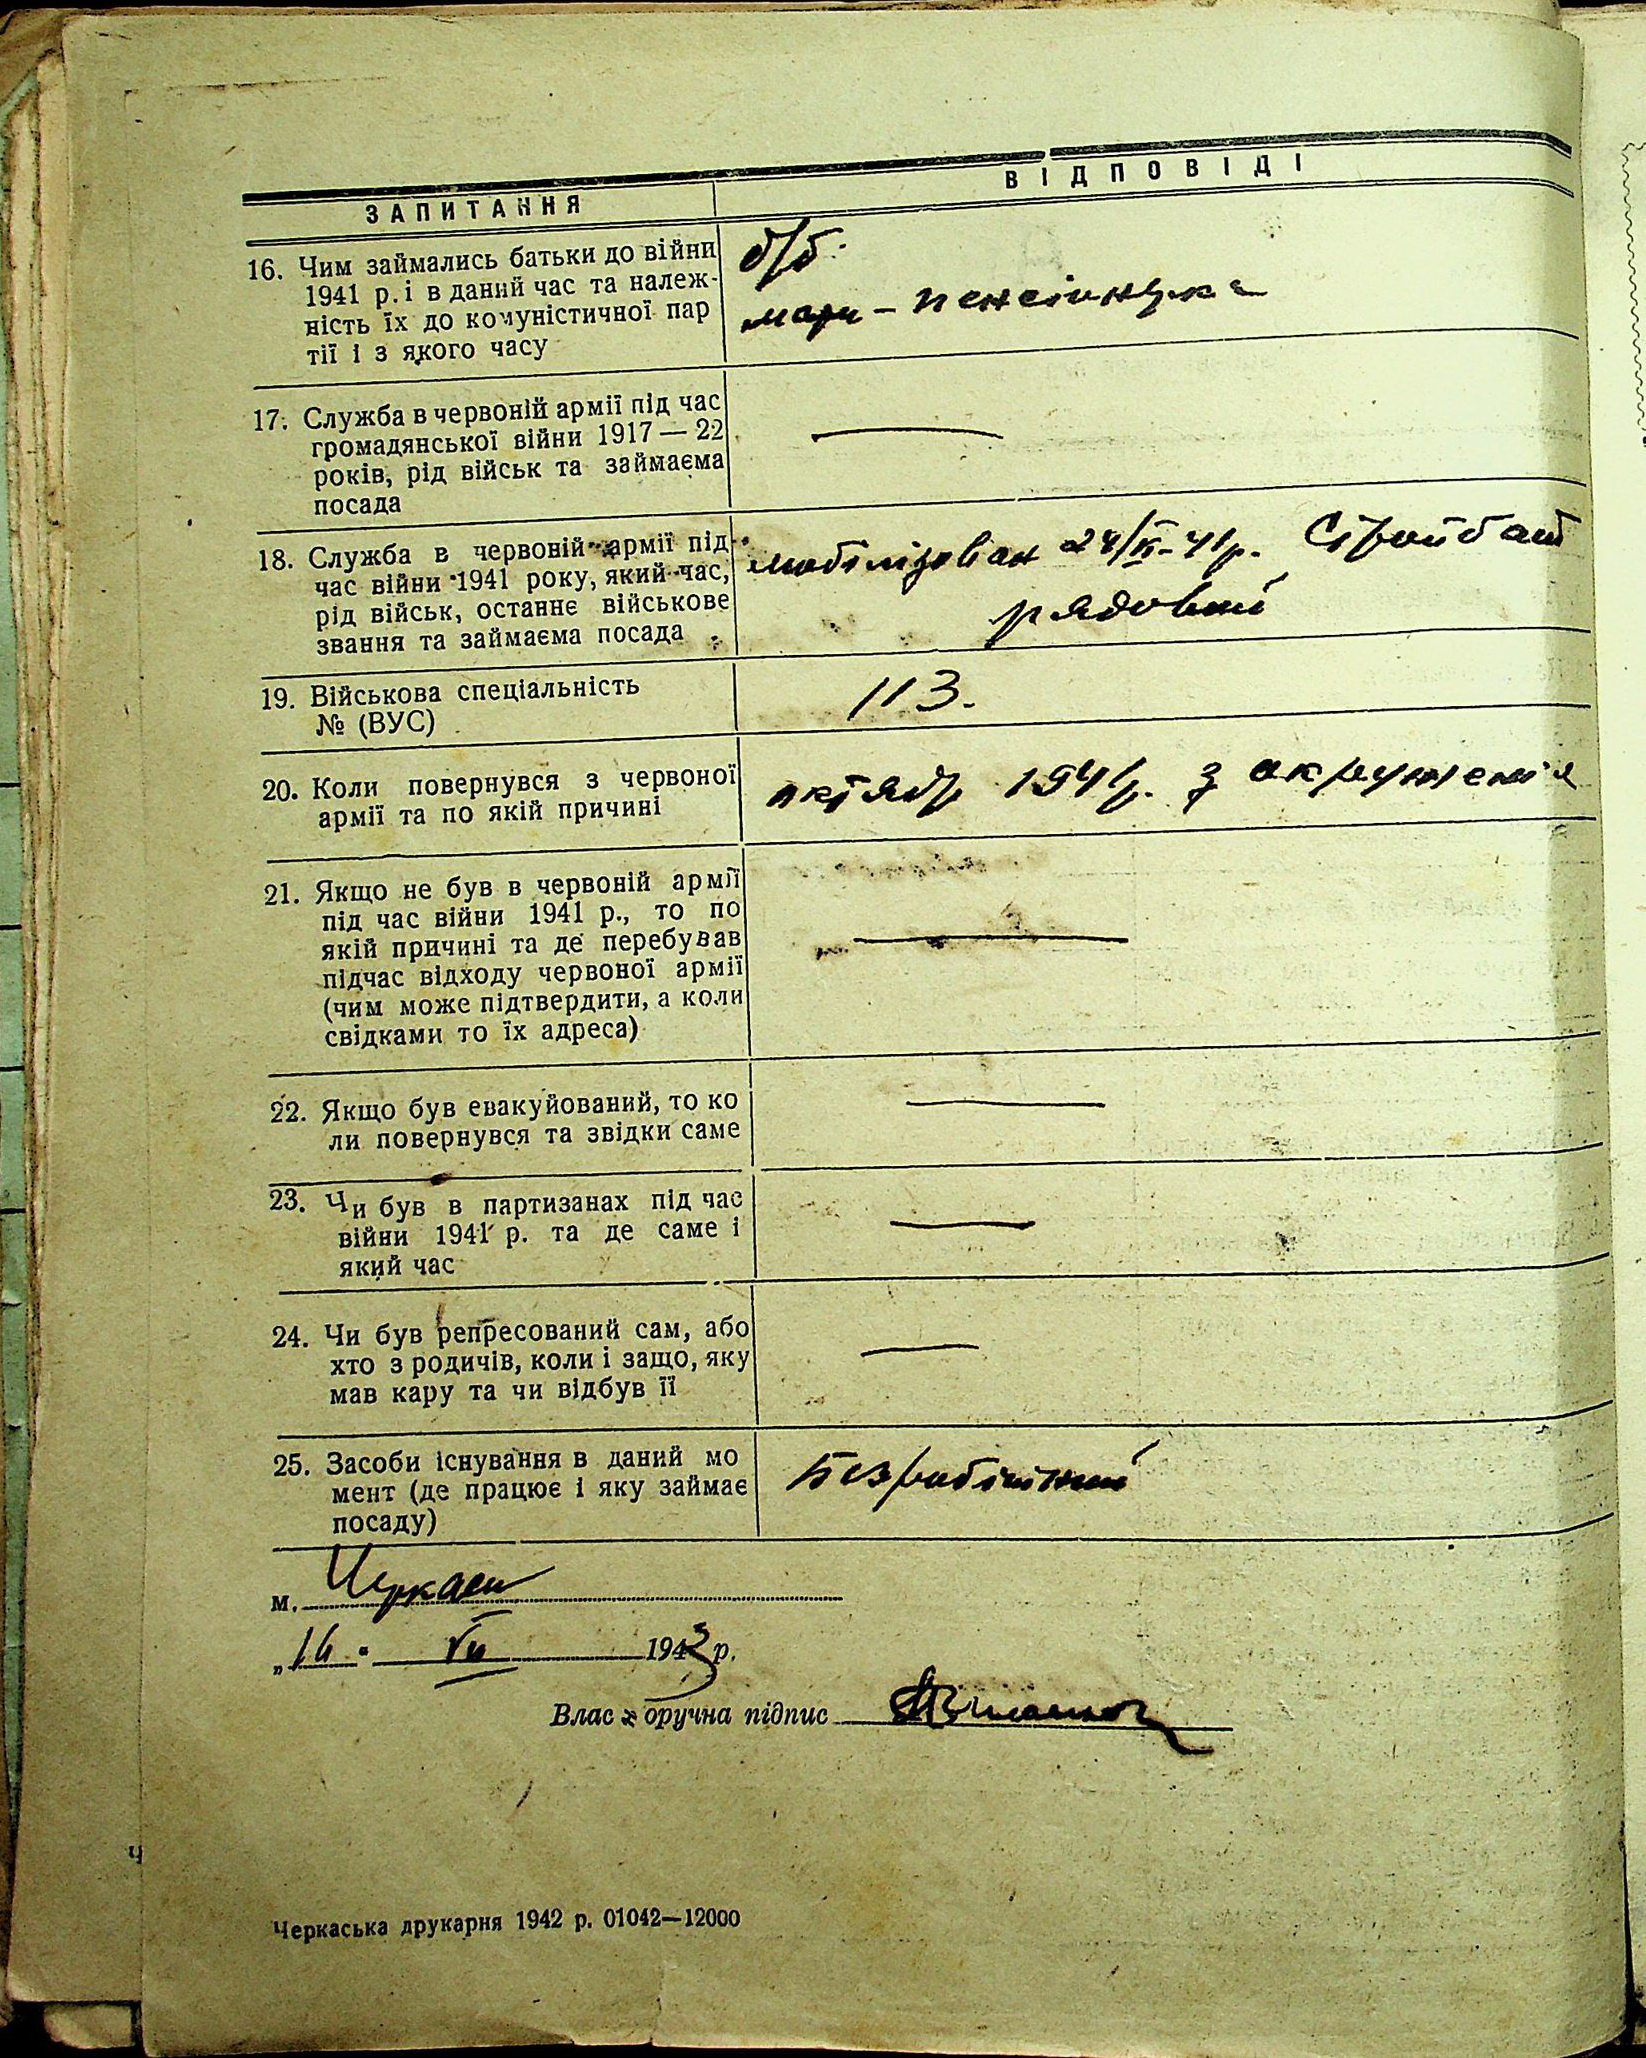 ЗАПИТАННЯ
ВІДПОВІДІ
16. Чим займались батьки до війни
1941 р. і в даний час та належ-
ність їх до комуністичної пар
тії і з якого часу
б/б.
мати – пенсіонерка
17. Служба в червоній армії під час
громадянської війни 1917 — 22
років, рід військ та займаєма
посада
—
18. Служба в червоній армії під
час війни 1941 року, який час,
рід військ, останнє військове
звання та займаєма посада
мобілізован 41р. Стройбат
рядовий
19. Військова спеціальність
№ (ВУС)
113.
20. Коли повернувся з червоної
армії та по якій причині
октябр 1941р. з окруженія
21. Якщо не був в червоній армії
під час війни 1941 р., то по
якій причині та де перебував
підчас відходу червоної армії
(чим може підтвердити, а коли
свідками то їх адреса)
—
22. Якщо був евакуйований, то ко
ли повернувся та звідки саме
—
23. Чи був в партизанах під час
війни 1941 р. та де саме і
який час
—
24. Чи був репресований сам, або
хто з родичів, коли і защо, яку
мав кару та чи відбув її
—
25. Засоби існування в даний мо
мент (де працює і яку займає
посаду)
Безробітний
м. Черкаси
„16" VII 1943 р.
Власноручна підпис
Черкаська друкарня 1942 р. 01042—12000